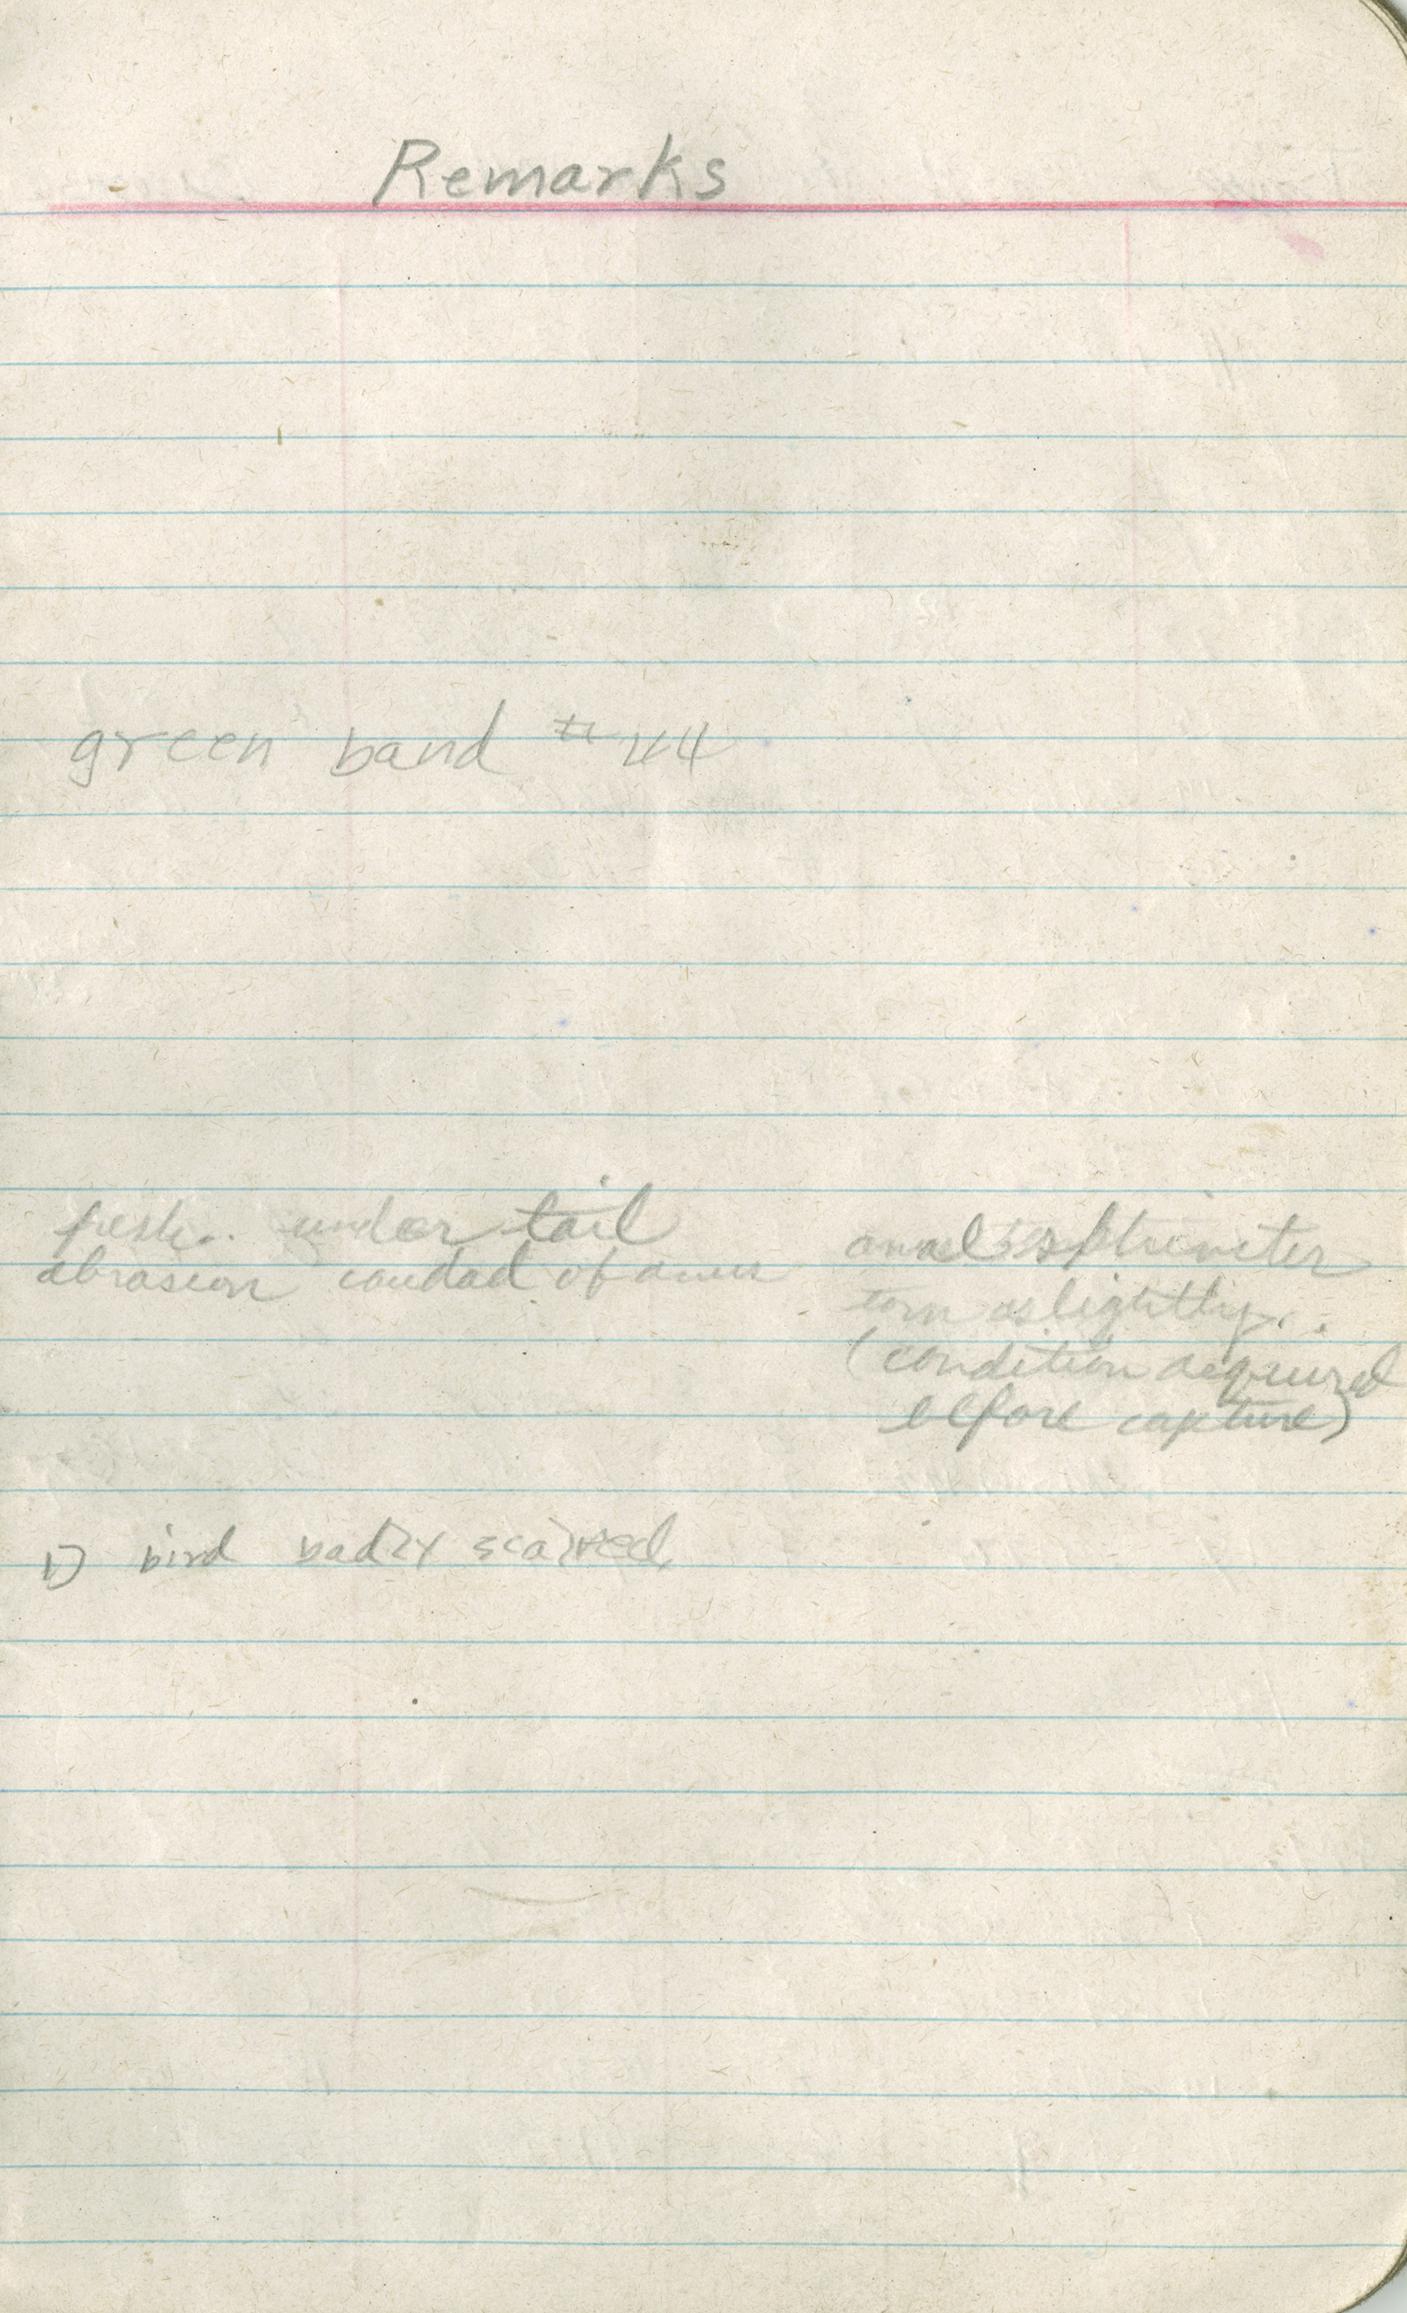 Remarks
green band #44
fresh.. under tail
abrasion caudad of anus
anal sphincter
torn slightly..
(condition acquired
before capture)
1) bird badly scalped